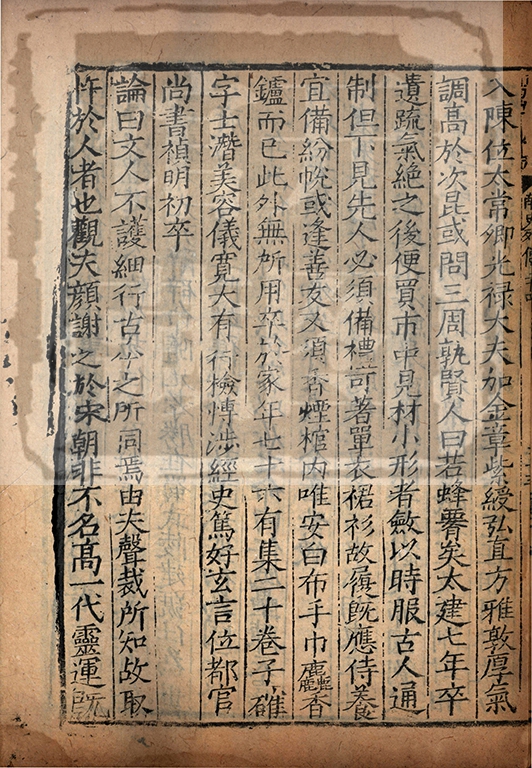 入陳位太常卿光禄大夫加金章紫綬弘直方雅敦厚氣
調高於次昆或問三周孰賢人曰若蜂𦝫矣太建七年卒
遺疏氣絶之後便買市中見材小形者斂以時服古人通
制但下見先人必須備禮可著單衣裙衫故履既應侍養
宜備紛帨或逢善友又須香煙棺内唯安白布手巾麤香
鑪而已此外無所用卒於家年七十六有集二十卷子確
字士潛美容儀寛大有行檢愽涉經史篤好玄言位都官
尚書禎明初卒
論曰文人不護細行古今之所同焉由夫聲裁所知故取
忤於人者也觀夫顔謝之於宋朝非不名髙一代靈運既